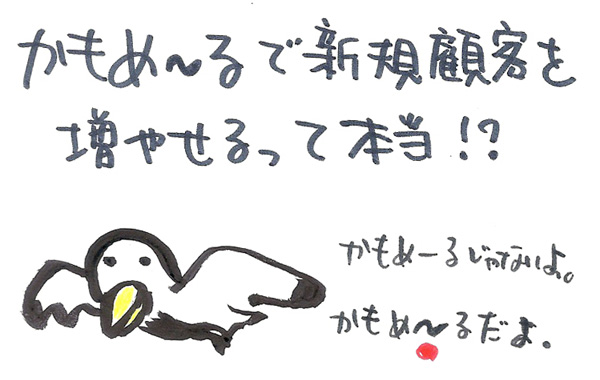 かもめ〜るで新規顧客を
増やせるって本当!?
かもめーるじゃないよ。
かもめ〜るだよ.